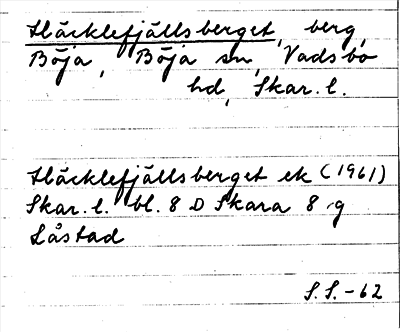 Häcklefjällsberget, berg,
Böja, Böja sn, Vadsbo
hd, Skar. l.
Häcklefjällsberget ek (1961)
Skar. l. bl. 8 D Skara 8 g
Låstad
S.S. -62